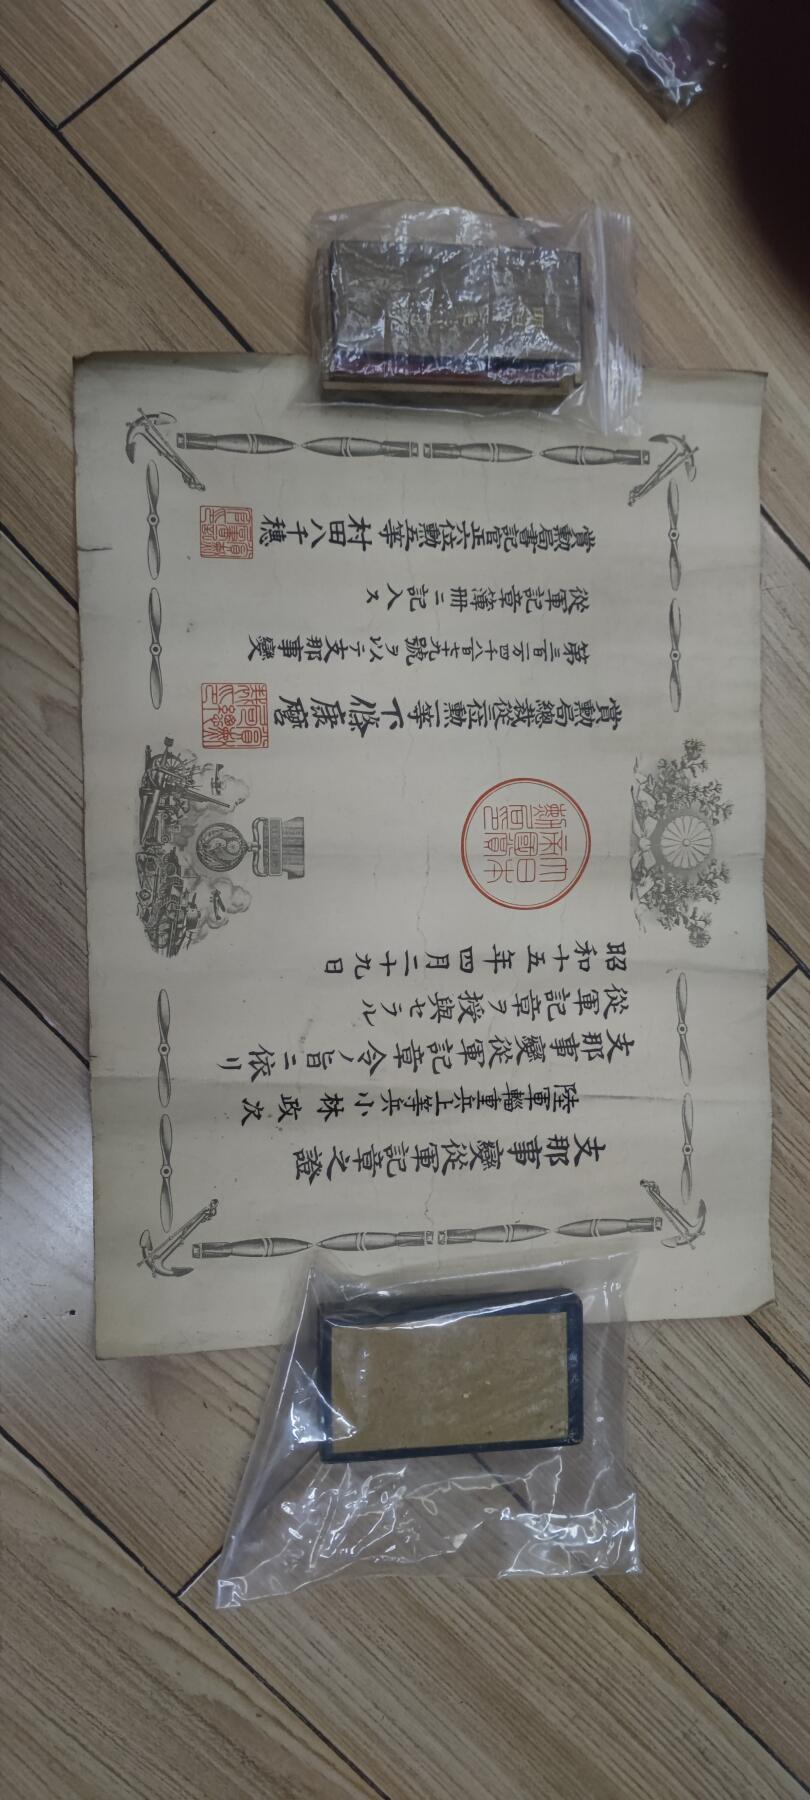 支那事變從軍記章之證
陸軍輜重兵上等兵小林政次
支那事變從軍記章令ノ旨ニ依リ
從軍記章ヲ授與セラル
昭和十五年四月二十九日
大日本帝國賞勳局印
賞勳局總裁從三位勳一等下條康麿
第三百一万四千八百七十九號ヲ以テ支那事變
從軍記章簿冊ニ記入ス
賞勳局書記官正六位勳五等村田八千穗